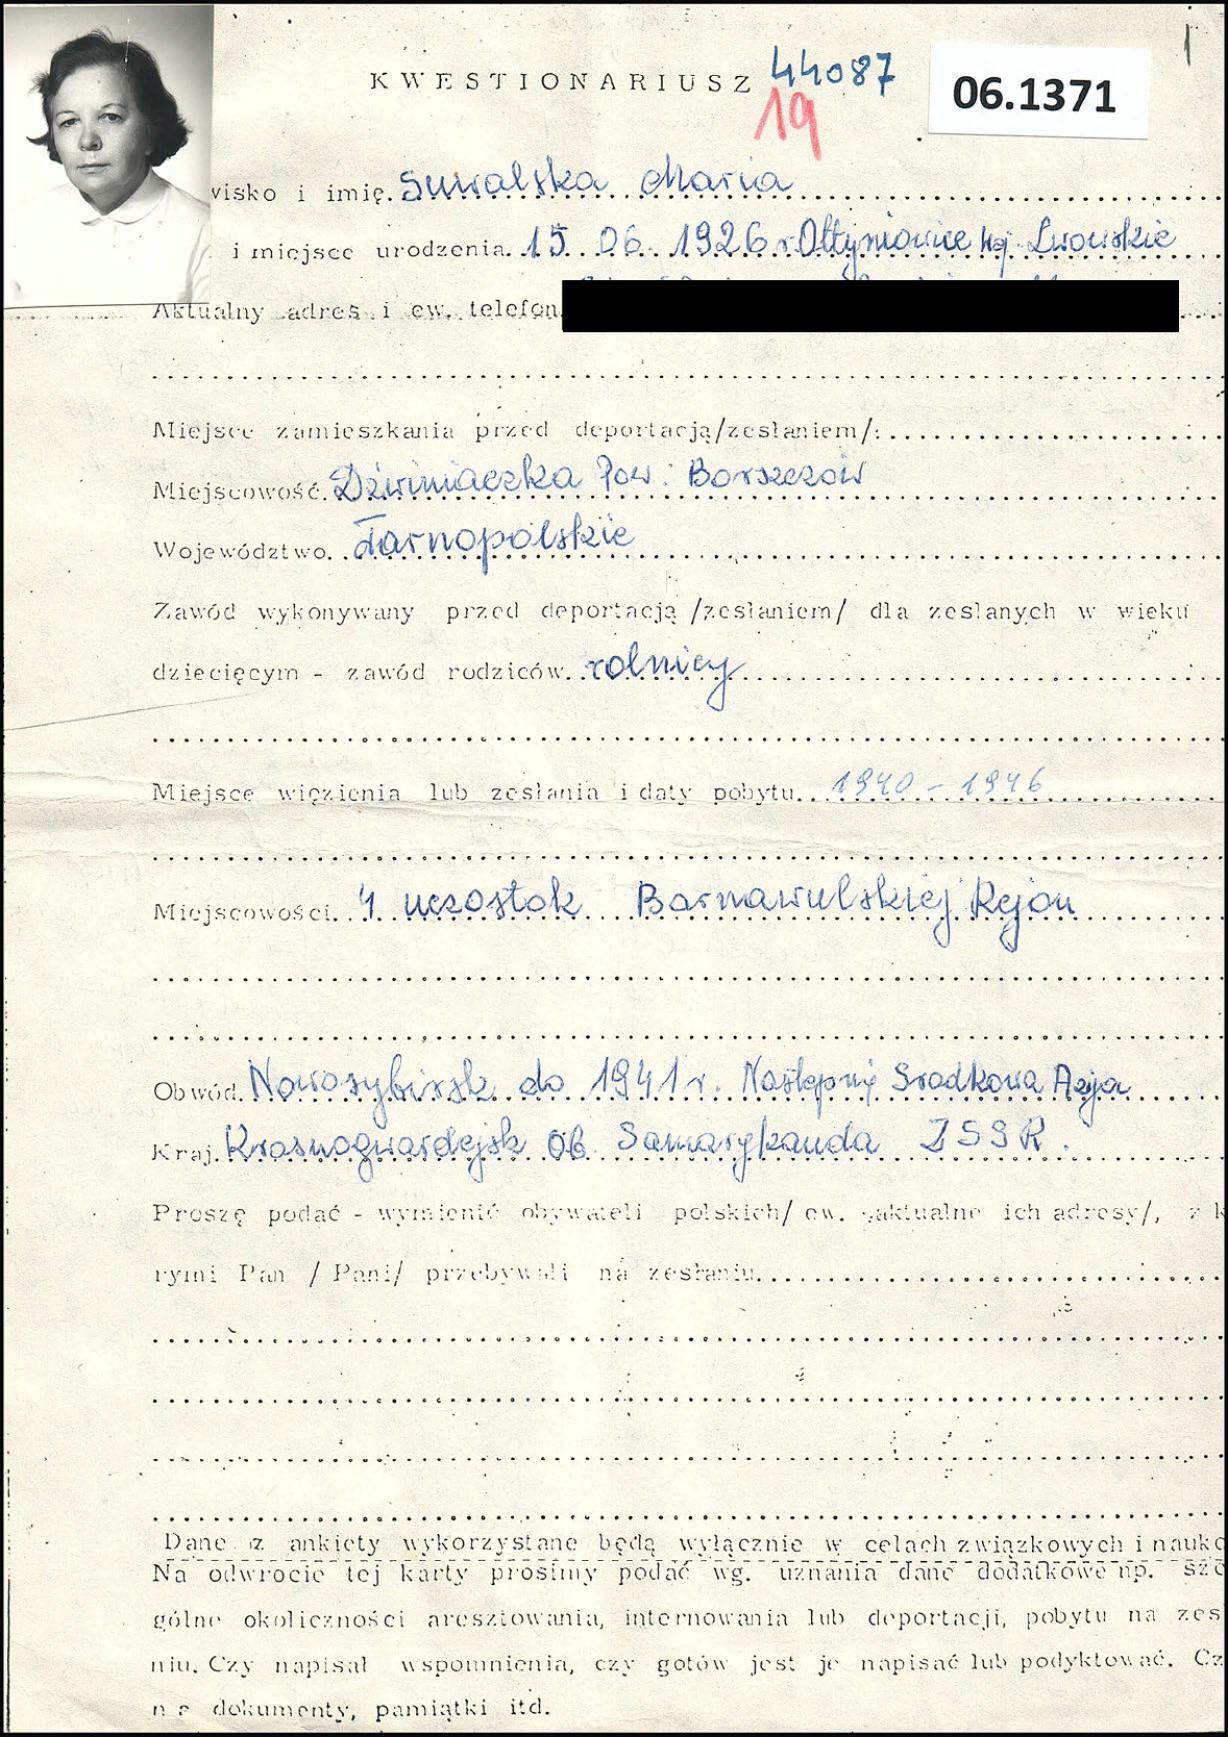 1
KWESTIONARIUSZ 44087
19
06.1371
wisko i imię. Suwalska Maria
i miejsce urodzenia. 15. 06. 1926 r Ołtyniowice Woj. Lwowskie
Aktualny adres i ew. telefon
Miejsce zamieszkania przed deportacją/zesłaniem/:
Miejscowość. Dźwiniaczka Pow: Borszczów
Województwo. Tarnopolskie
Zawód wykonywany przed deportacją /zesłaniem/ dla zesłanych w wieku
dziecięcym - zawód rodziców. rolnicy
Miejsce więzienia lub zesłania i daty pobytu. 1940 - 1946
Miejscowości. 4 uczostok Barnawulskiej Rejon
Obwód. Nowosybirsk do 1941 r. Następnie Srodkowa Azja
Kraj. Krasnogwardejsk Ob Samarykanda ZSSR.
Proszę podać - wymienić obywateli polskich/ ew. aktualne ich adresy/, z k
rymi Pan / Pani/ przebywali na zesłaniu.
Dane z ankiety wykorzystane będą wyłącznie w celach związkowych i nauko
Na odwrocie tej karty prosimy podać wg. uznania dane dodatkowe np. szc
gólne okoliczności aresztowania, internowania lub deportacji, pobytu na zes
niu. Czy napisał wspomnienia, czy gotów jest je napisać lub podyktować. Cz
na dokumenty, pamiątki itd.